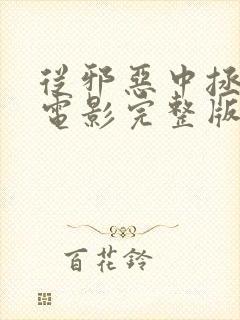 從邪惡中拯
電影完整版
百花鈴